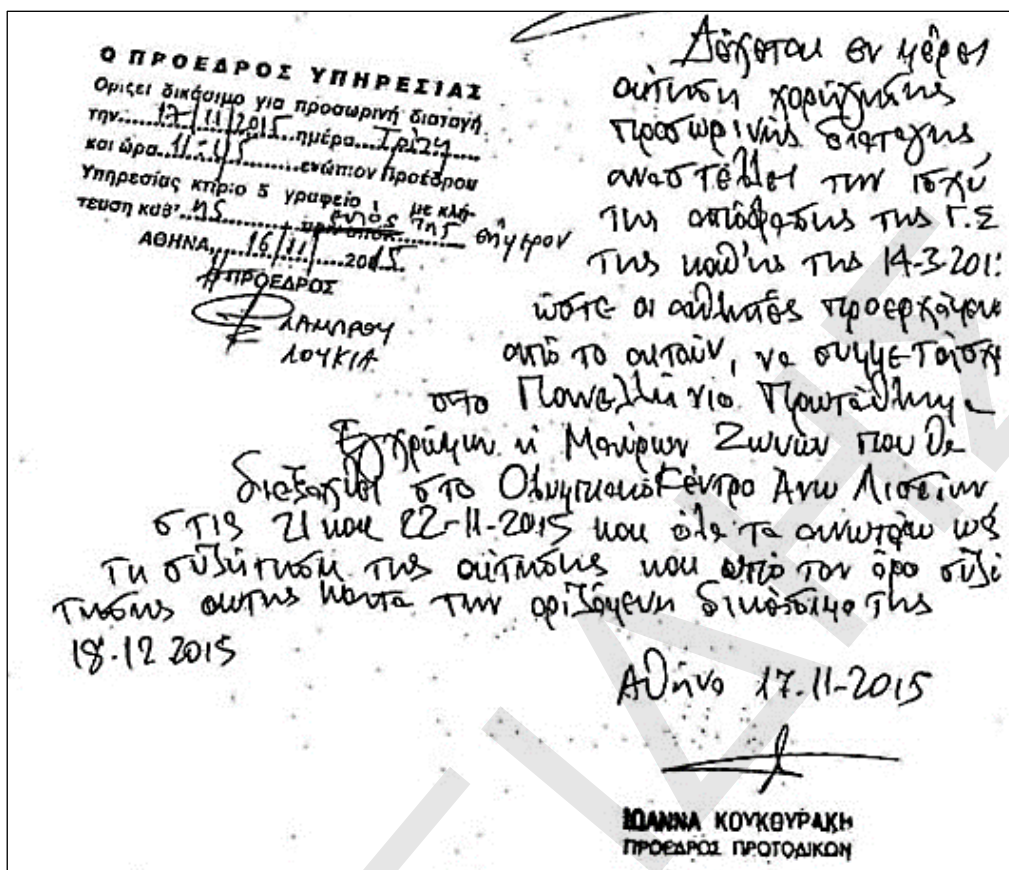 Ο ΠΡΟΕΔΡΟΣ ΥΠΗΡΕΣΙΑΣ
Ορίζει δικάσιμο για προσωρινή διαταγή
την 17/11/2015 ημέρα Τρίτη
και ώρα 11-15 ενώπιον Προέδρου
Υπηρεσίας κτίριο 5 γραφείο 1 με κλή-
τευση καθ' ης εντός της σήμερον
ΑΘΗΝΑ 16/11/2015
Ο ΠΡΟΕΔΡΟΣ
ΛΑΜΠΡΟΥ
ΛΟΥΚΙΑ
Δέχεται εν μέρει
αίτηση χορήγησης
προσωρινής διαταγής,
αναστέλλει την ισχύ
της απόφασης της Γ.Σ
της καθ'ης της 14-3-201
ώστε οι αθλητές προερχόμενοι
από το αιτούν, να συμμετάσχ
στο Πανελλήνιο Πρωτάθλημα
Εγχρώμων κ Μαύρων Ζωνών που θα
διεξαχθεί στο Ολυμπιακό Κέντρο Άνω Λιοσίων
στις 21 και 22-11-2015 και όλα τα ανωτέρω ως
τη συζήτηση της αίτησης και υπό τον όρο συζή
τησης αυτής κατά την οριζόμενη δικάσιμο της
18-12 2015
Αθήνα 17-11-2015
ΙΩΑΝΝΑ ΚΟΥΚΟΥΡΑΚΗ
ΠΡΟΕΔΡΟΣ ΠΡΩΤΟΔΙΚΩΝ